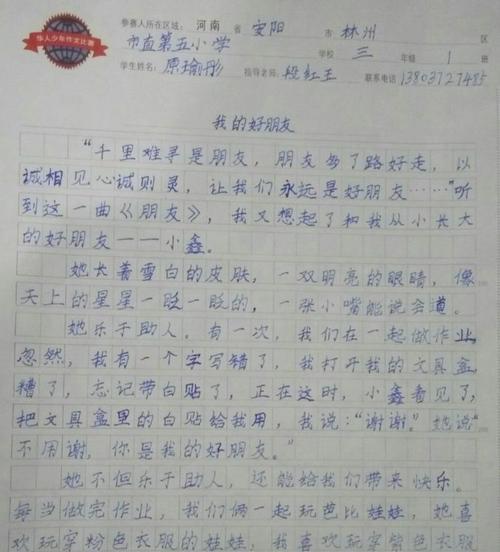 华人少年作文比赛
参赛人所在区域: 河南 省 安阳 市 林州 区
市直第五小学 学校 三 年级 1 班
学生姓名: 原瑜彤 指导老师: 段红玉 联系电话 13803727485
我的好朋友
“千里难寻是朋友，朋友多了路好走，以
诚相见心诚则灵，让我们永远是好朋友……”听
到这一曲《朋友》，我又想起了和我从小长大
的好朋友——小鑫。
她长着雪白的皮肤，一双明亮的眼睛，像
天上的星星一眨一眨的，一张小嘴能说会道。
她乐于助人。有一次，我们在一起做作业
忽然，我有一个字写错了，我打开我的文具盒，
糟了，忘记带白贴了，正在这时，小鑫看见了，
把文具盒里的白贴给我用，我说：“谢谢。”她说“
不用谢，你是我的好朋友。”
她不但乐于助人，还能给我们带来快乐。
每当做完作业，我们俩一起玩芭比娃娃，她喜
欢玩穿粉色衣服的娃娃，我喜欢玩穿紫色衣服